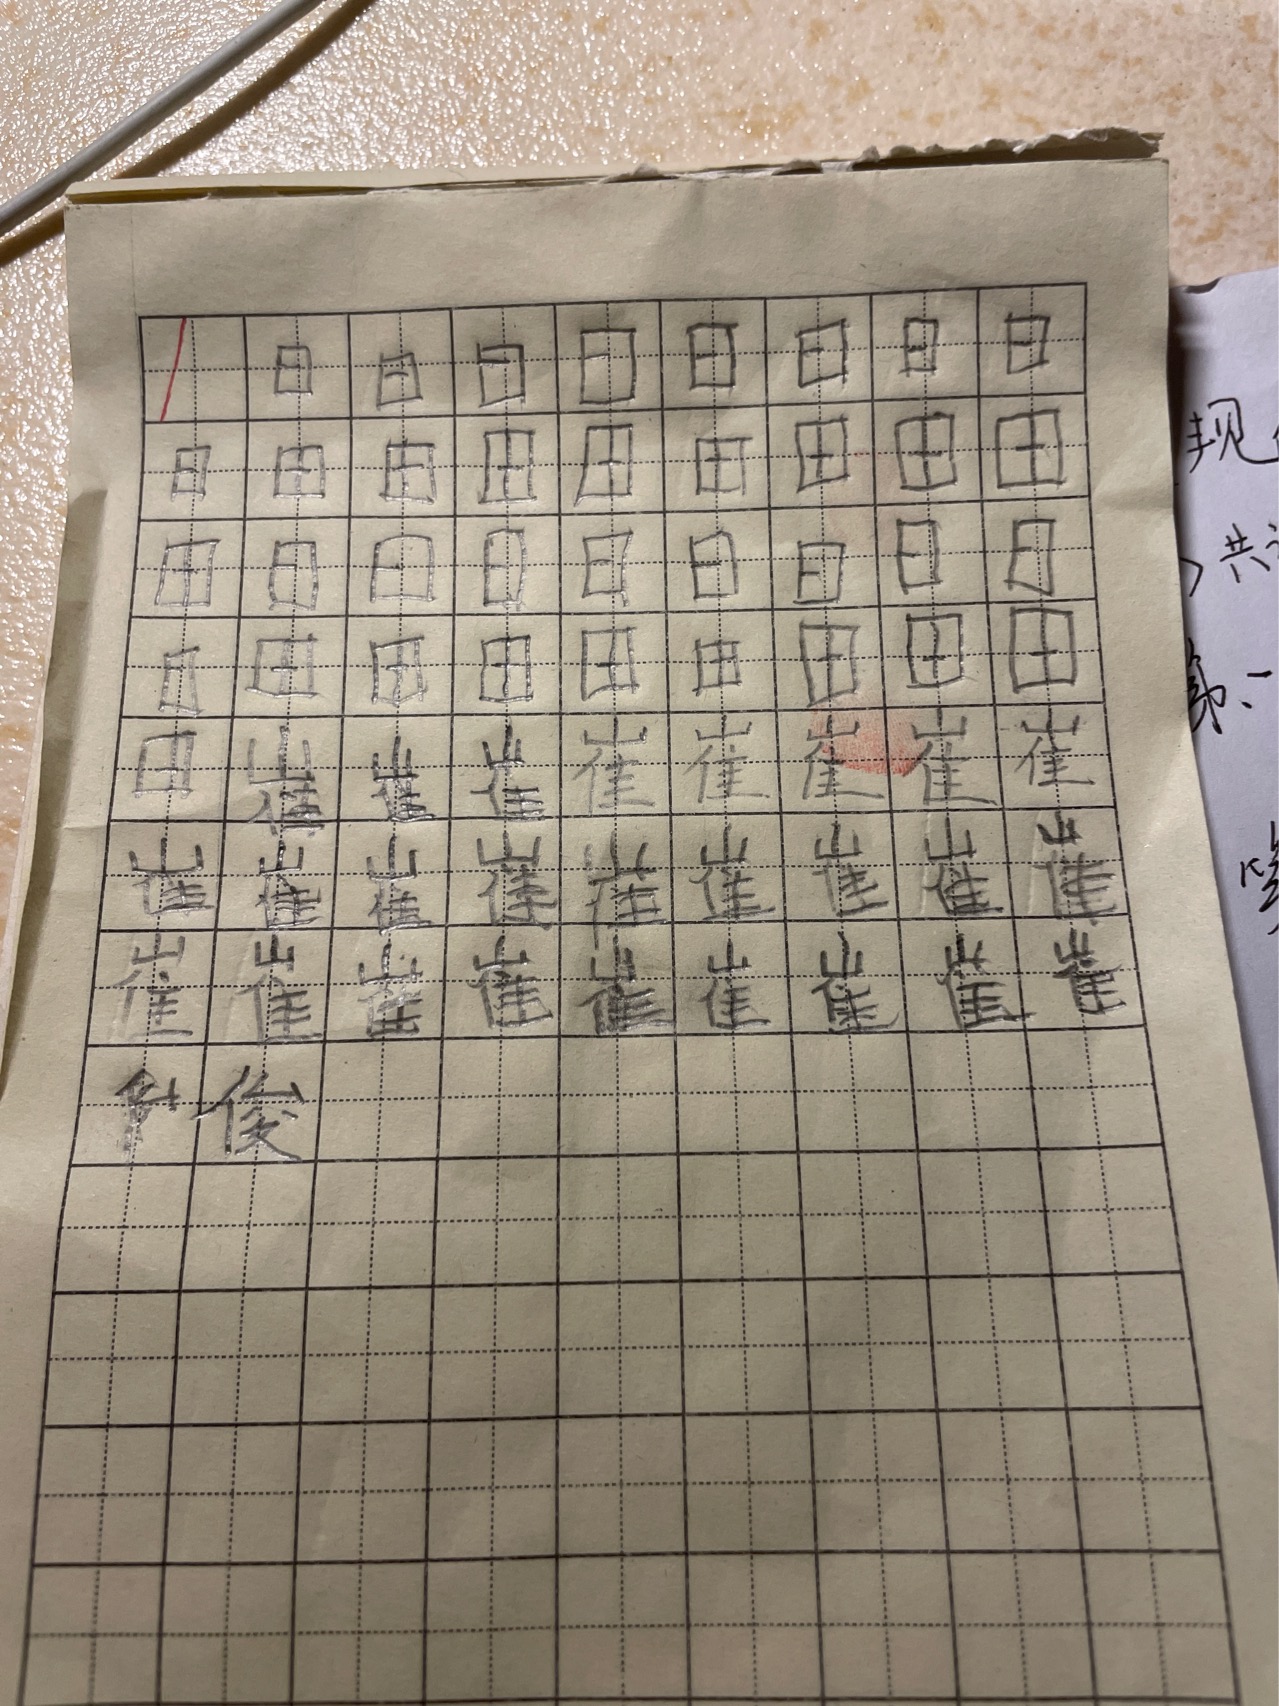 日 日 日 日 日 日 日 日
日 田 田 田 田 田 田 田 田
田 日 日 日 日 日 日 日 日
日 田 田 田 田 田 田 田 田
田 崔 崔 崔 崔 崔 崔 崔 崔
崔 崔 崔 崔 崔 崔 崔 崔 崔
崔 崔 崔 崔 崔 崔 崔 崔 崔
俊
现
共
第一